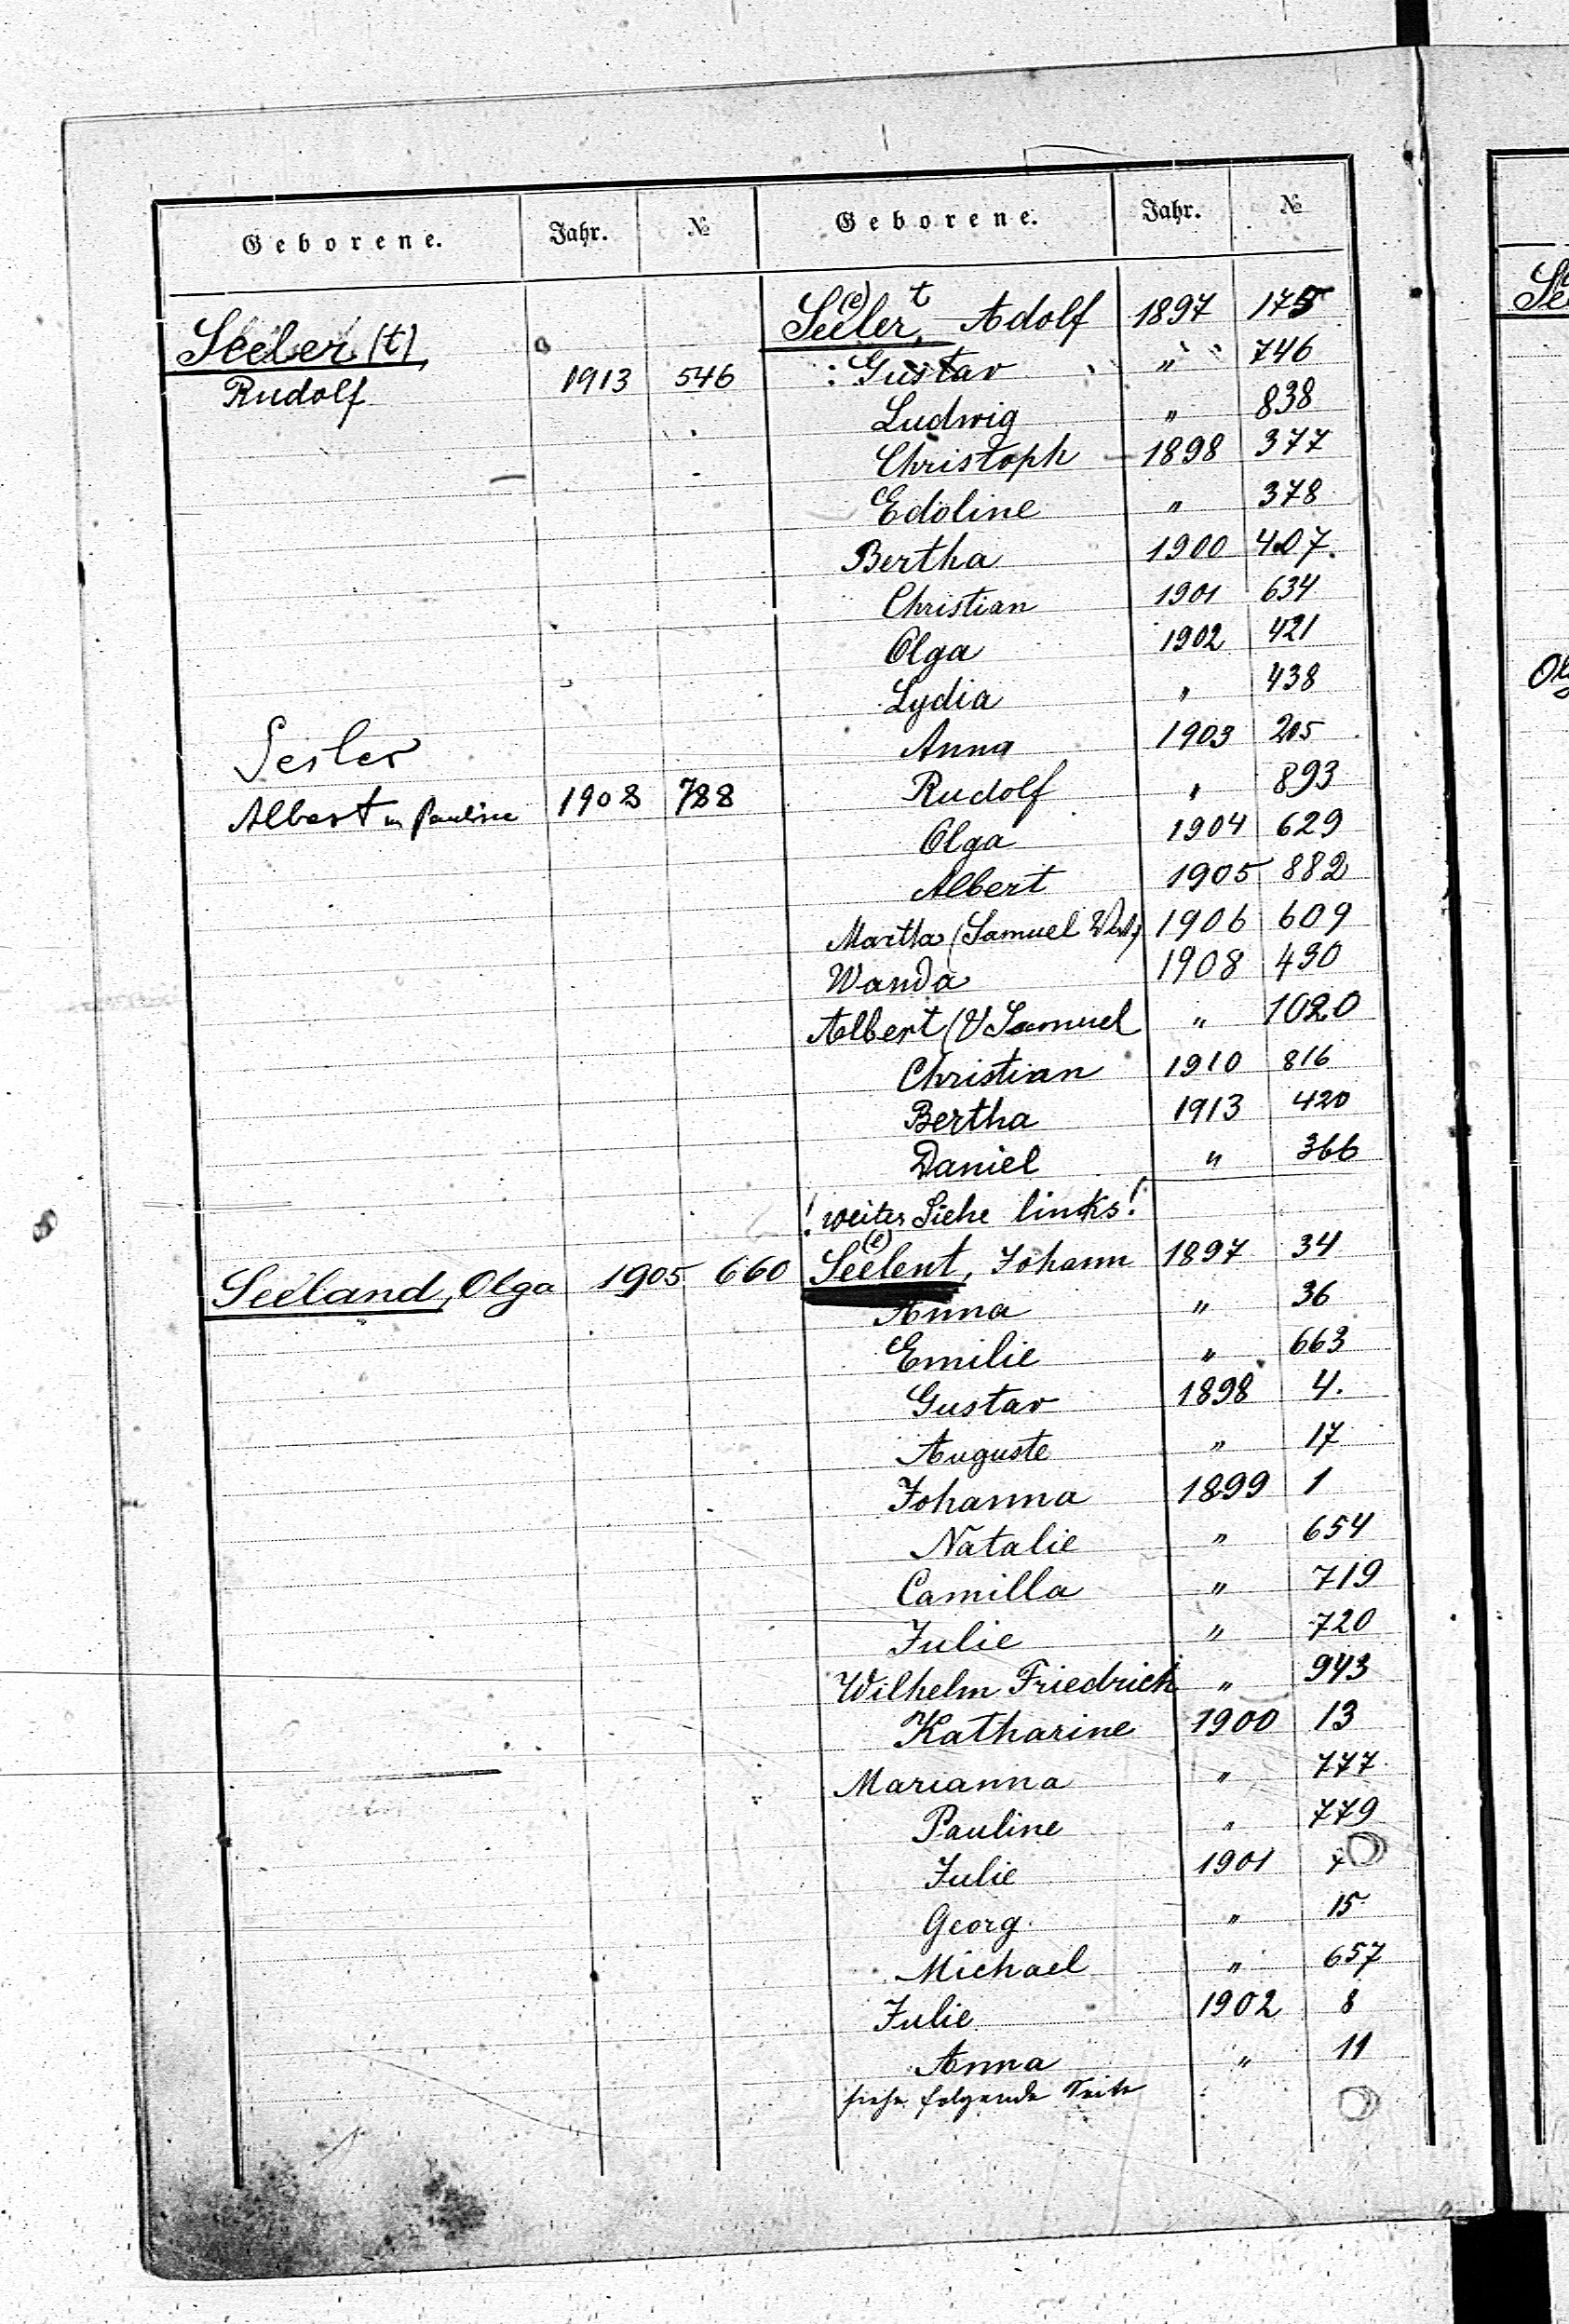 Geborene. Jahr. №
Seeler (t),
Rudolf 1913 546
Seiler
Albert m Pauline 1908 788
Seeland, Olga 1905 660
Geborene. Jahr. №
See(e)ler,t Adolf 1897 175
Gustav " 746
Ludwig " 838
Christoph 1898 377
Edoline " 378
Bertha 1900 407.
Christian 1901 634
Olga 1902 421
Lydia " 438
Anna 1903 205
Rudolf " 893
Olga 1904 629
Albert 1905 882
Martha (Samuel 1906 609
Wanda 1908 430
Albert (V Samuel " 1020
Christian 1910 816
Bertha 1913 420
Daniel " 366
! weiter Siehe links!
See(e)lent, Johann 1897 34
Anna " 36
Emilie " 663
Gustav 1898 4.
Auguste " 17
Johanna 1899 1
Natalie " 654
Camilla " 719
Julie " 720
Wilhelm Friedrich " 943
Katharine 1900 13
Marianna " 777
Pauline " 779
Julie 1901
Georg. " 15
Michael " 657
Julie 1902 8
Anna " 11
siehe folgende Seite
Se
Ol